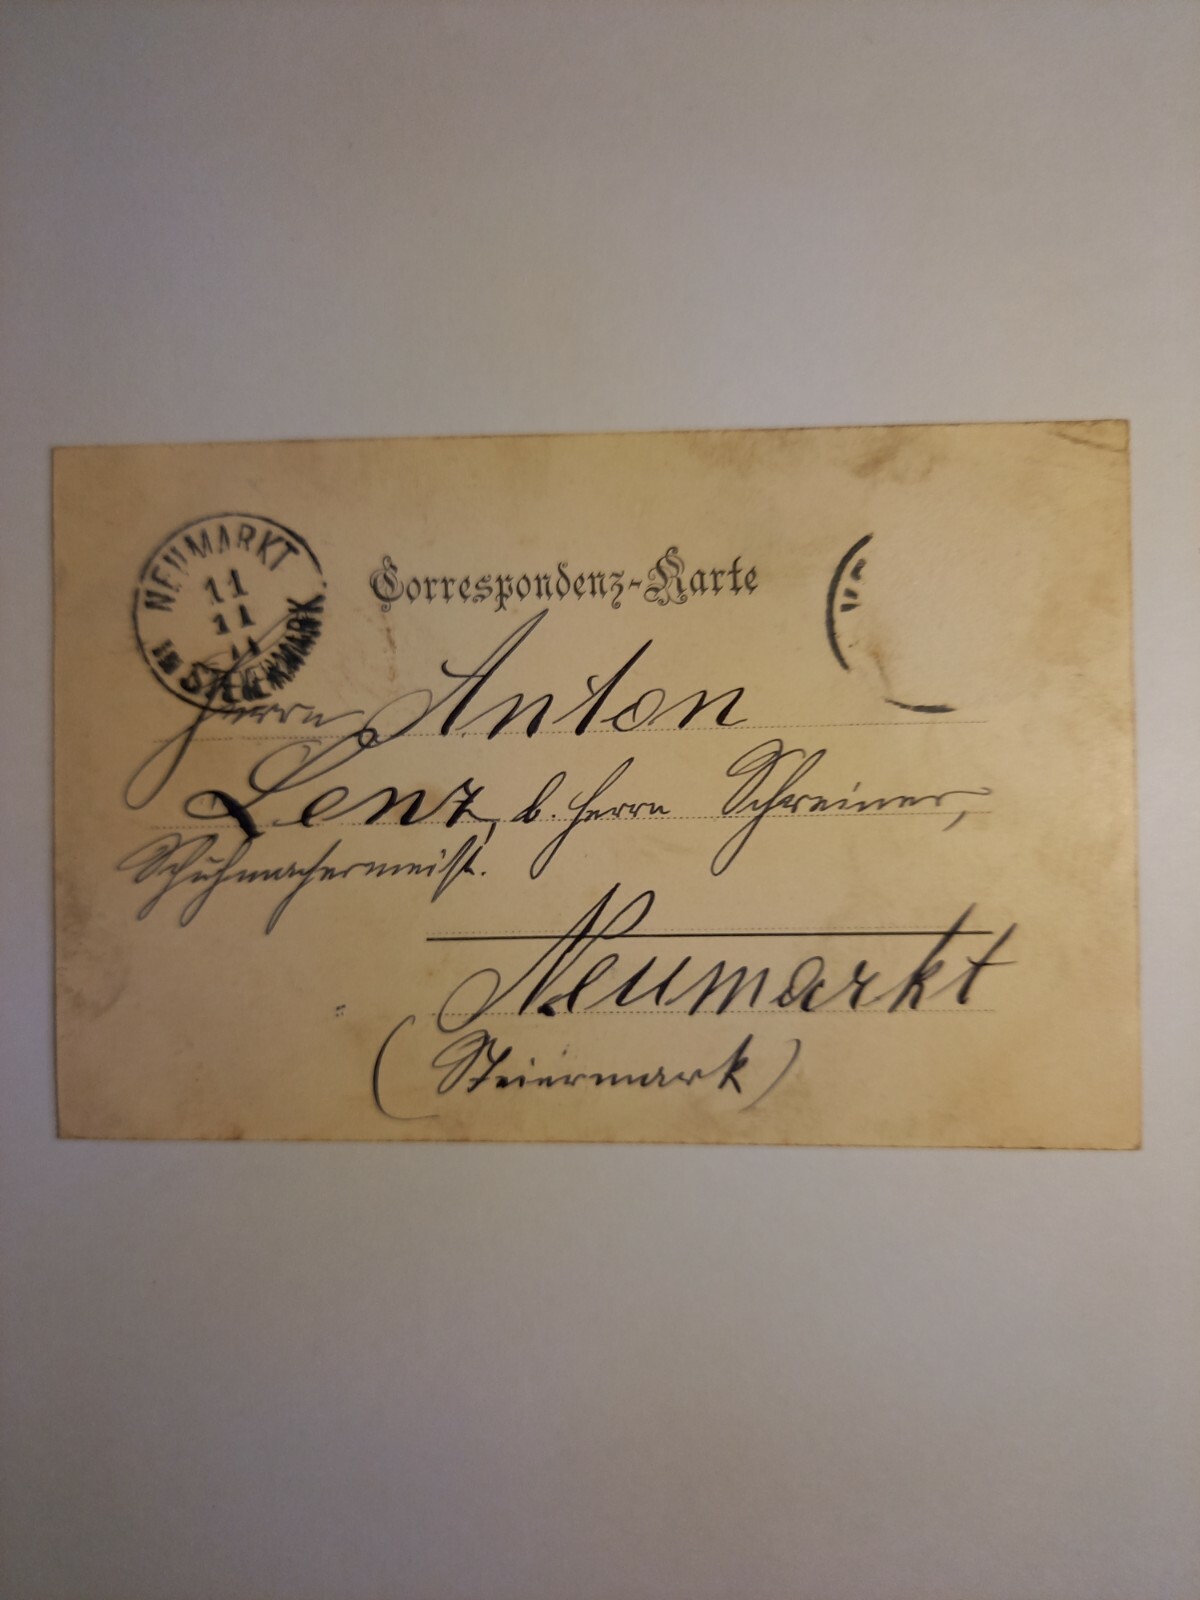 NEUMARKT
11
11
in STEIERMARK
Correspondenz-Karte
Herrn Anton
Lenz, b. Herrn Schreiner,
Schuhmachermeist.
Neumarkt
(Steiermark)